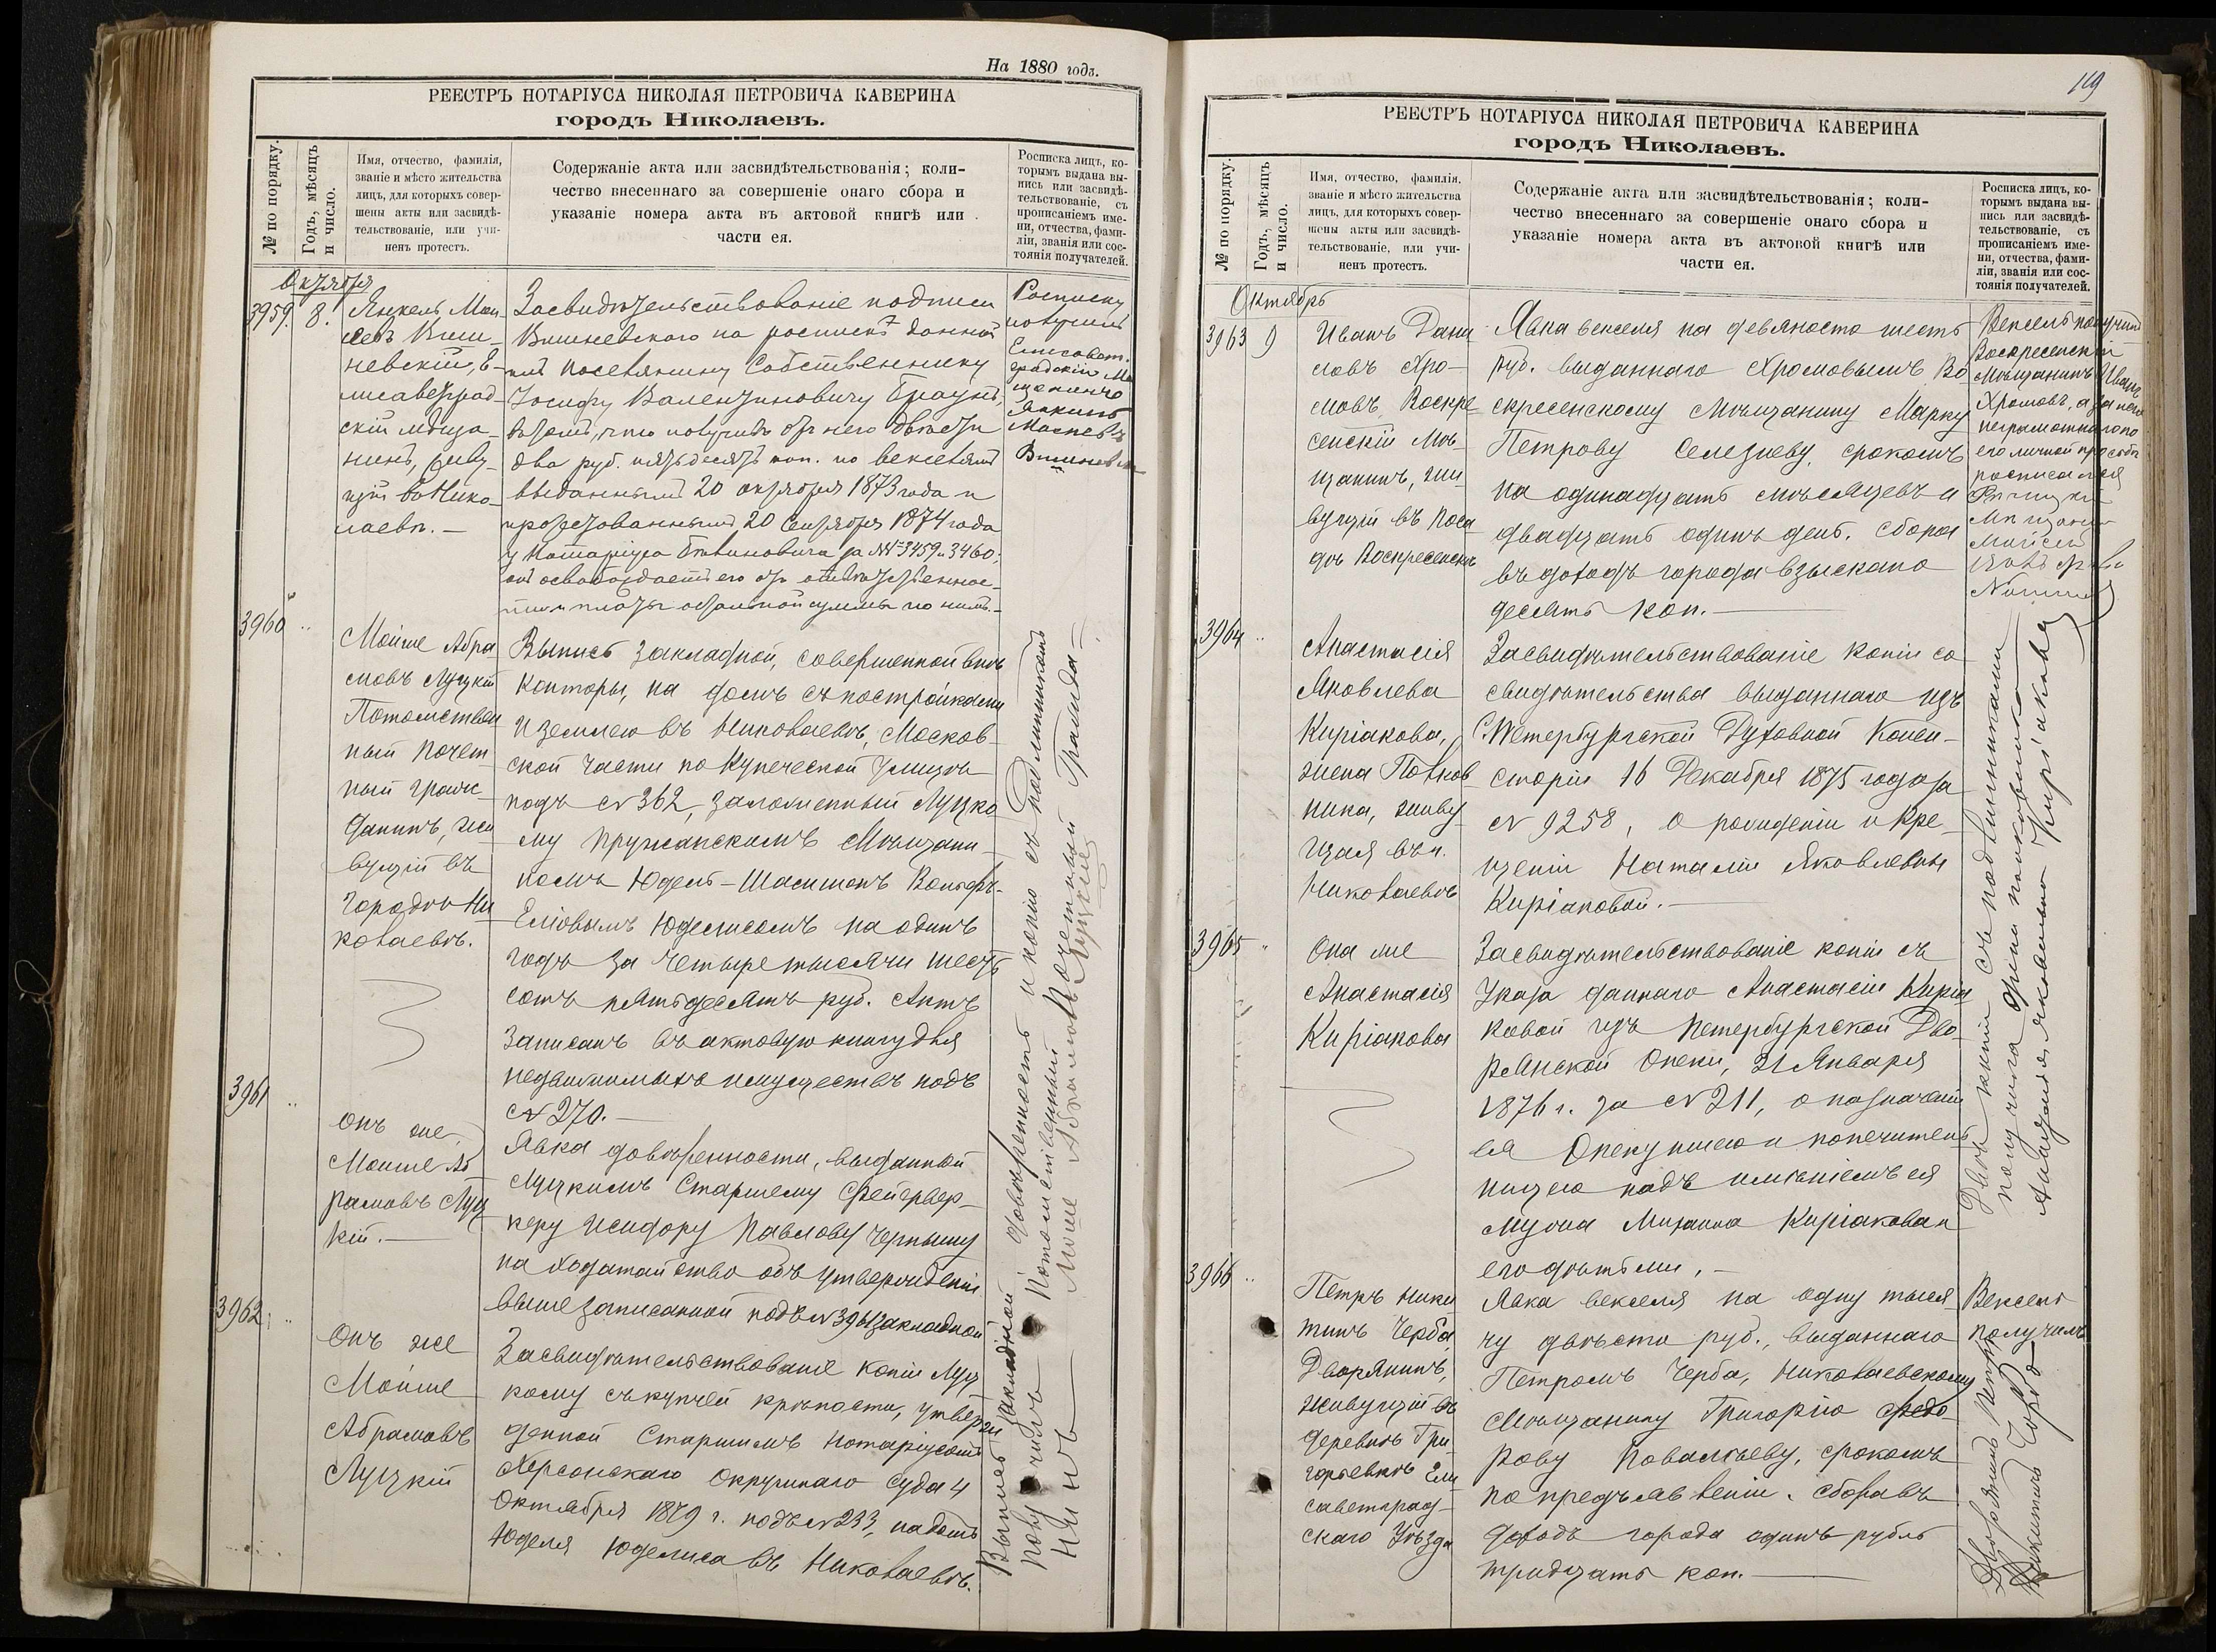 На 1880 годъ.
РЕЕСТРЪ НОТАРІУСА НИКОЛАЯ ПЕТРОВИЧА КАВЕРИНА
городъ Николаевъ.
№ по порядку.
Годъ, мѣсяцъ
и число.
Имя, отчество, фамилія,
званіе и мѣсто жительства
лицъ, для которыхъ совер-
шены акты или засвидѣ-
тельствованіе, или учи-
ненъ протестъ.
Содержаніе акта или засвидѣтельствованія; коли-
чество внесеннаго за совершеніе онаго сбора и
указаніе номера акта въ актовой книгѣ или
части ея.
Росписка лицъ, ко-
торымъ выдана вы-
пись или засвидѣ-
тельствованіе, съ
прописаніемъ име-
ни, отчества, фами-
ліи, званія или сос-
тоянія получателей.
Октября
3959. 8.
Янкель Мош
невскій, Е-
лисаветград-
скій мѣща-
нинъ, живу-
щій въ Нико-
лаевѣ. —
Засвидѣтельствованіе подписи
Вишневскаго на роспискѣ данной
имъ поселянину собственнику
Іосифу Валентиновичу Браунъ
въ томъ, что получилъ отъ него двѣсти
два руб. пятьдесятъ коп. по векселямъ
выданнымъ 20 октября 1873 года и
протестованнымъ 20 Сентября 1874 года
у Нотаріуса за №№ 3459 и 3460;
онъ освобождаетъ его отъ отвѣтственнос-
ти и платы остальной суммы по нимъ.—
Росписку
получилъ
Елисавет-
градскій Мѣ
щанинъ
3960
Мойше Абра
мовъ Луцкій
Потомствен
ный Почет
ный Граж-
данинъ, жи
вущій въ
Городѣ Ни
колаевѣ.
Выпись закладной, совершенной внѣ
конторы, на домъ съ постройками
и землею въ Николаевѣ, Москов-
ской части по Купеческой улицѣ
подъ № 362, заложенный Луцко
му Пружанскимъ Мѣщани-
номъ Юдель-Шлиомъ Вольфъ-
Еліовымъ Юделисомъ на одинъ
годъ за четыре тысячи шесть
сотъ пятьдесятъ руб. Актъ
записанъ въ актовую книгу для
недвижимыхъ имуществъ подъ
№ 270.—
3961
Онъ же
Мойше Аб
рамовъ Луц
кій.—
Явка довѣренности, выданной
Луцкимъ Старшему Фейервер-
керу Исидору Павлову Чернышу
на ходатайство объ утвержденіи
выше записанной подъ № 3961 закладной
3962
Онъ же
Мойше
Абрамовъ
Луцкій
Засвидѣтельствованіе копіи Луц
кому съ купчей крѣпости, утверж
денной Старшимъ Нотаріусомъ
Херсонскаго Окружнаго Суда 4
Октября 1879 г. подъ № 233, на домъ
Юделя Юделиса въ Николаевѣ.
Выпись закладной довѣренность и копію съ подлинникомъ
получилъ Потомственный Почетный Гражда-
нинъ — Мойше Абрамовъ Луцкій
119
РЕЕСТРЪ НОТАРІУСА НИКОЛАЯ ПЕТРОВИЧА КАВЕРИНА
городъ Николаевъ.
№ по порядку.
Годъ, мѣсяцъ
и число.
Имя, отчество, фамилія,
званіе и мѣсто жительства
лицъ, для которыхъ совер-
шены акты или засвидѣ-
тельствованіе, или учи-
ненъ протестъ.
Содержаніе акта или засвидѣтельствованія; коли-
чество внесеннаго за совершеніе онаго сбора и
указаніе номера акта въ актовой книгѣ или
части ея.
Росписка лицъ, ко-
торымъ выдана вы-
пись или засвидѣ-
тельствованіе, съ
прописаніемъ име-
ни, отчества, фами-
ліи, званія или сос-
тоянія получателей.
Октябрь
3963 9
Иванъ Дани
ловъ Хро-
мовъ, Воскре-
сенскій Мѣ-
щанинъ, жи-
вущій въ Поса
дѣ Воскресенскѣ
Явка векселя на девяносто шесть
руб. выданнаго Хромовымъ Во
скресенскому Мѣщанину Марку
Петрову Селезневу, срокомъ
на одинадцать мѣсяцевъ и
двадцать одинъ день. Сбора
въ доходъ города взыскано
десять коп.—
Вексель получилъ
Воскресенскій
Мѣщанинъ Иванъ
Хромовъ, а за него
неграмотнаго по
его личной просьбѣ
росписался
3964
Анастасія
Яковлева
Киріакова,
жена Полков
ника, живу
щая въ г.
Николаевѣ
Засвидѣтельствованіе копіи со
свидѣтельства выданнаго изъ
С.Петербургской Духовной Консис-
торіи 16 Декабря 1875 года за
№ 9258, о рожденіи и кре-
щеніи Наталіи Яковлевны
Киріаковой.—
3965
Она же
Анастасія
Киріакова
Засвидѣтельствованіе копіи съ
Указа даннаго Анастасіи Киріа
ковой изъ Петербургской Дво-
рянской Опеки, 21 Января
1876 г. за № 211, о назначеніи
ея Опекуншею и попечитель
ницею надъ имѣніемъ ея
мужа Михаила Киріакова и
его дѣтьми.—
Двѣ копіи съ подлинниками
получила жена полковника
Анастасія Яковлевна Киріакова
3966
Петръ Ники
тинъ Черба,
Дворянинъ,
живущій въ
деревнѣ Гри
горьевкѣ Ели
саветград-
скаго Уѣзда
Явка векселя на одну тыся-
чу двѣсти руб., выданнаго
Петромъ Черба, Николаевскому
Мѣщанину Григорію Федо-
рову Ковалтьеву, срокомъ
по предъявленіи. Сбора въ
доходъ города одинъ рубль
тридцать коп.—
Вексель
получилъ
Дворянинъ Петръ
Никитинъ Черба